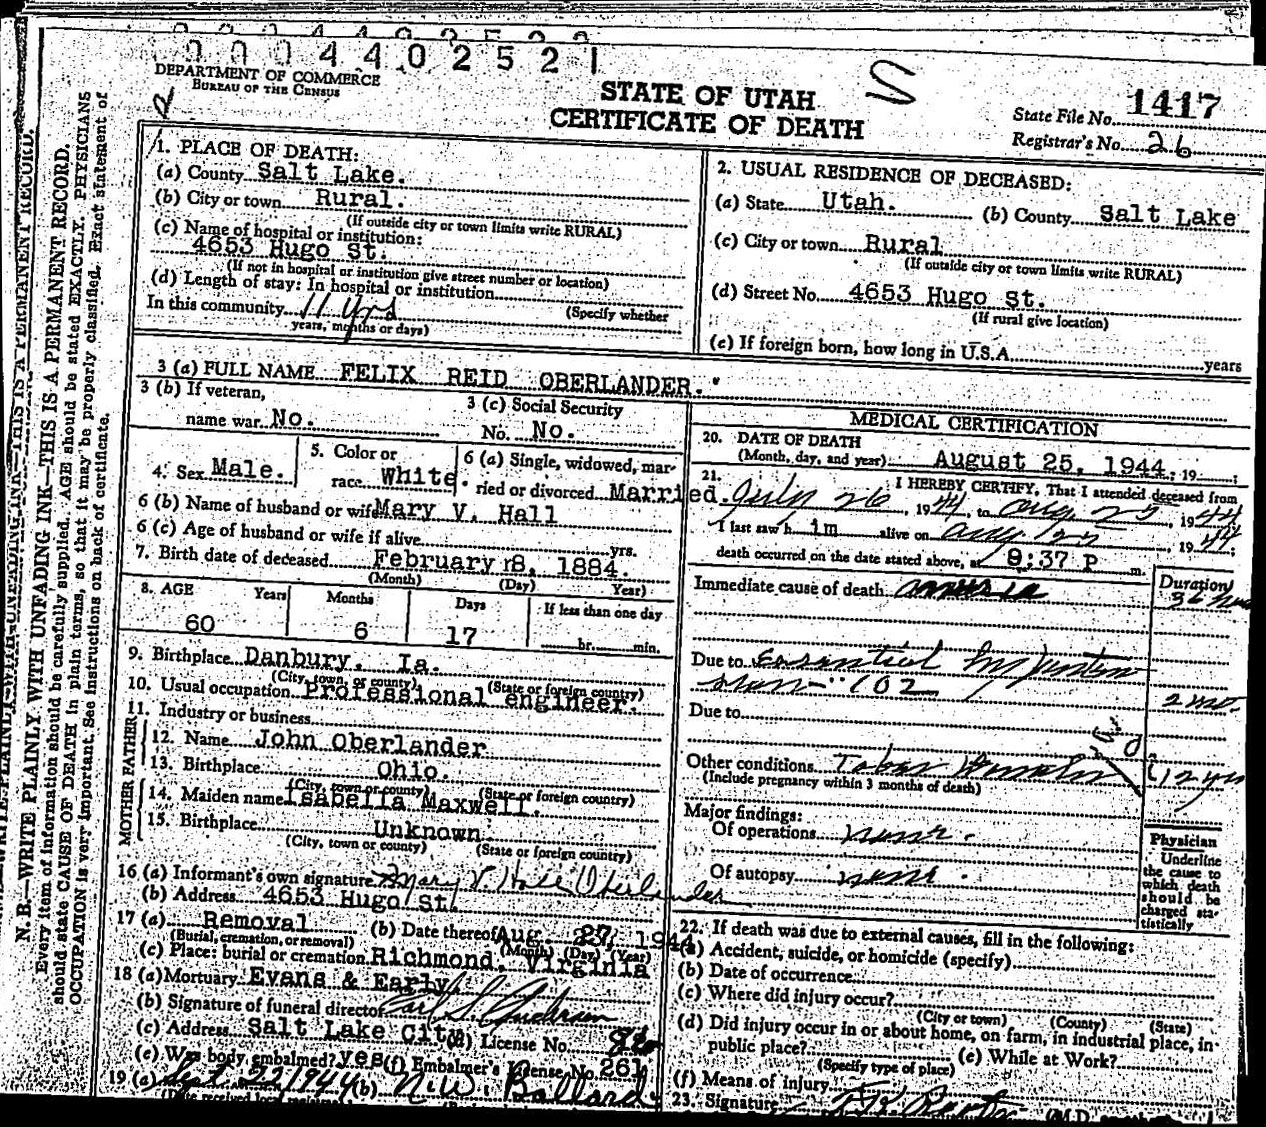 0 0 0 4 4 0 2 5 2 1
DEPARTMENT OF COMMERCE
BUREAU OF THE CENSUS
STATE OF UTAH
CERTIFICATE OF DEATH
State File No. 1417
Registrar's No. 26
N. B.—WRITE PLAINLY WITH UNFADING INK—THIS IS A PERMANENT RECORD.
Every item of information should be carefully supplied. AGE should be stated EXACTLY. PHYSICIANS
should state CAUSE OF DEATH in plain terms, so that it may be properly classified. Exact statement of
OCCUPATION is very important. See instructions on back of certificate.
1. PLACE OF DEATH:
(a) County Salt Lake.
(b) City or town Rural.
(If outside city or town limits write RURAL)
(c) Name of hospital or institution:
4653 Hugo St.
(If not in hospital or institution give street number or location)
(d) Length of stay: In hospital or institution
In this community 11 Yrs (Specify whether
years, months or days)
2. USUAL RESIDENCE OF DECEASED:
(a) State Utah. (b) County Salt Lake
(c) City or town Rural
(If outside city or town limits write RURAL)
(d) Street No. 4653 Hugo St.
(If rural give location)
(e) If foreign born, how long in U.S.A. years
3 (a) FULL NAME FELIX REID OBERLANDER.
3 (b) If veteran,
name war No.
3 (c) Social Security
No. No.
4. Sex Male.
5. Color or
race White.
6 (a) Single, widowed, mar-
ried or divorced Married.
6 (b) Name of husband or wife Mary V. Hall
6 (c) Age of husband or wife if alive yrs.
7. Birth date of deceased February 8, 1884.
(Month) (Day) (Year)
8. AGE Years Months Days If less than one day
60 6 17 hr. min.
9. Birthplace Danbury. Ia.
(City, town, or county) (State or foreign country)
10. Usual occupation Professional engineer.
11. Industry or business
FATHER
12. Name John Oberlander
13. Birthplace Ohio.
(City, town or county) (State or foreign country)
MOTHER
14. Maiden name Isabella Maxwell.
15. Birthplace Unknown
(City, town or county) (State or foreign country)
16 (a) Informant's own signature Mary V. Hall Oberlander
(b) Address 4653 Hugo St.
17 (a) Removal (b) Date thereof Aug. 27, 1944
(Burial, cremation, or removal) (Month) (Day) (Year)
(c) Place: burial or cremation Richmond, Virginia
18 (a) Mortuary Evans & Early
(b) Signature of funeral director
(c) Address Salt Lake City (d) License No.
(e) Was body embalmed? yes (f) Embalmer's License No. 261
19 (a) Sept. 22 1944 (b) N. W. Ballard
MEDICAL CERTIFICATION
20. DATE OF DEATH
(Month, day, and year) August 25, 1944. 19
21. I HEREBY CERTIFY, That I attended deceased from
July 26, 1944, to Aug. 25, 1944
I last saw h im alive on Aug , 1944;
death occurred on the date stated above, at 8:37 P m.
Duration
Immediate cause of death
Due to Essential
102
2 mo.
Due to
Other conditions
(Include pregnancy within 3 months of death)
Major findings:
Of operations none.
Of autopsy none.
Physician
Underline
the cause to
which death
should be
charged sta-
tistically
22. If death was due to external causes, fill in the following:
(a) Accident, suicide, or homicide (specify)
(b) Date of occurrence
(c) Where did injury occur?
(City or town) (County) (State)
(d) Did injury occur in or about home, on farm, in industrial place, in
public place? (e) While at Work?
(Specify type of place)
(f) Means of injury
23. Signature